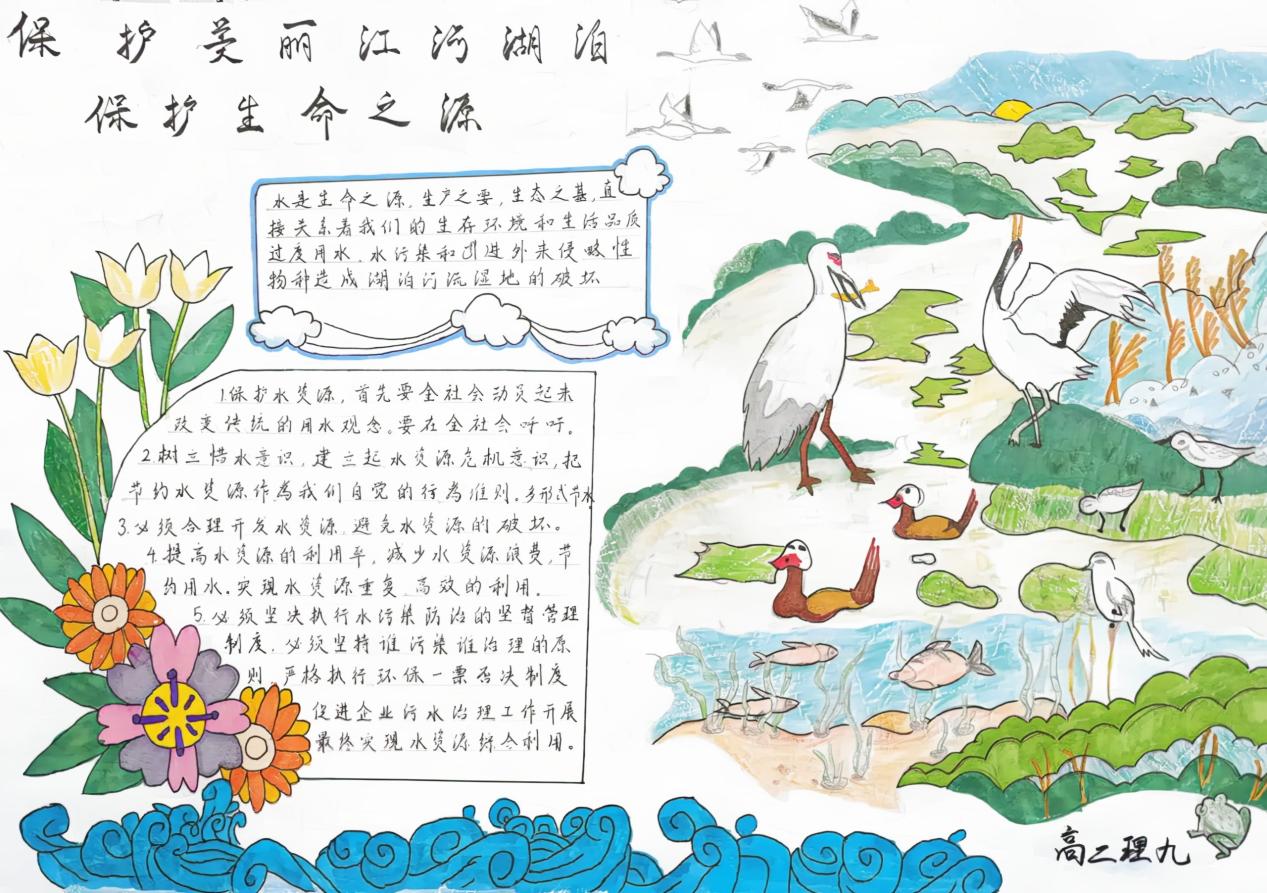 保护美丽江河湖泊
保护生命之源
水是生命之源,生产之要,生态之基,直
接关系着我们的生存环境和生活品质
过度用水、水污染和引进外来侵略性
物种造成湖泊河流湿地的破坏
1.保护水资源,首先要全社会动员起来
改变传统的用水观念。要在全社会呼吁。
2.树立惜水意识,建立起水资源危机意识,把
节约水资源作为我们自觉的行为准则。多形式节水
3.必须合理开发水资源,避免水资源的破坏。
4.提高水资源的利用率,减少水资源浪费,节
约用水。实现水资源重复、高效的利用。
5.必须坚决执行水污染防治的坚督管理
制度,必须坚持谁污染谁治理的原
则,严格执行环保一票否决制度
促进企业污水治理工作开展
最终实现水资源综合利用。
高二理九